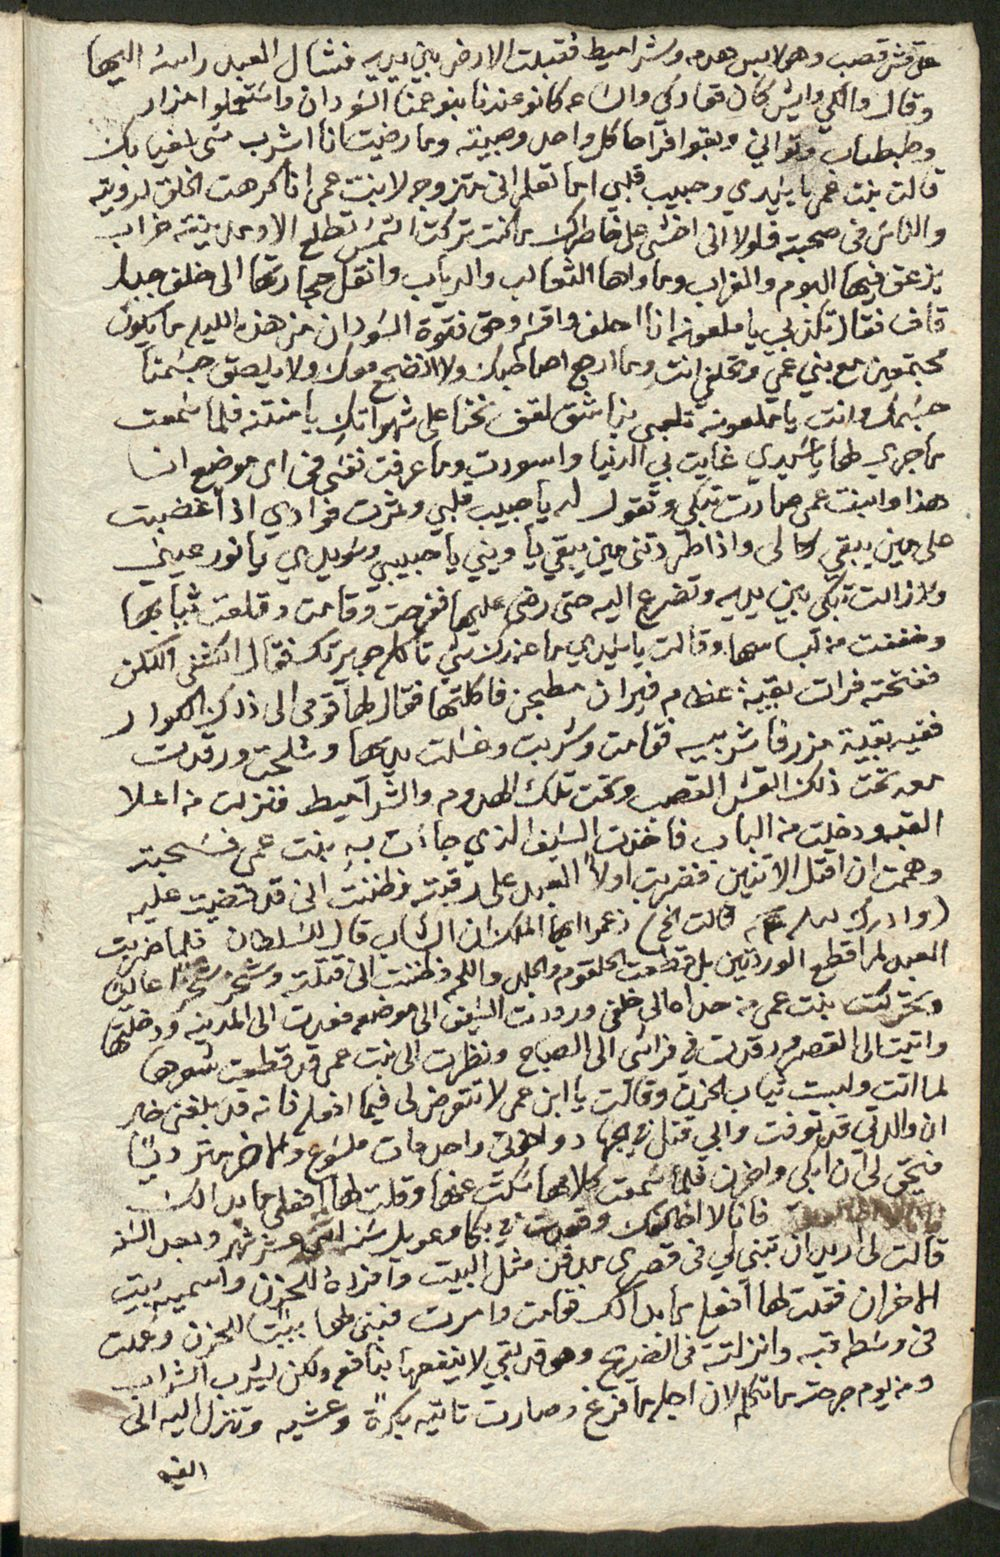 على قش قصب وهو لابس هدمه وشراميط فقبلت الارض بين يديه فشال العبد راسه اليها
وقال والكي وايش كان قعادكي والساعه كانو عندنا بنو عمنا السودان واستعملوا مزار
وطبطاب وقواني وبقوا افراحا كل واحد وصبيته وما رضيت انا اشرب شي لغيابك
قالت بنت عمى يا سيدي وحبيب قلبي اما تعلم انى متزوجه لابنت عمى انا كرهت الخلق لرويته
والناس فى صحبته فلولا انى اخشى على خاطرك ما كنت تركت الشمس تطلع الا ومدينته خراب
يزعق فيها البوم والغراب وماواها الثعالب والدياب وانقل حجارتها الى خلف جبل
قاف فقال تكذبي يا ملعونه انا احلف واقسم وحق فتوة السودان من هذه الليله ما يكون
مجتمعين مع بني عمي وتخلفي انت وما ارجع اصاحبك ولا انضجع معك ولا يلصق جسمنا
جسمك وانت يا ملعونه تلعبي بنا شق لقف نحنا على شهواتك يا منتنه فلما سمعت
ما جرى لهما يا سيدي غابت بي الدنيا واسودت وما عرفت نفسى فى اى موضع انا
هذا وابنت عمى صارت تبكي وتقول له يا حبيب قلبي وثمرت فوادي اذا غضبت
على مين يبقي لى واذا طردتنى مين يبقي ياويني يا حبيبي وسيدي يا نور عيني
ولا زالت تبكى بين يديه وتضرع اليه حتى رضى عليها ففرحت وقامت وقلعت ثيابها
وخففت من لباسها وقالت يا سيدي ما عندك شي تاكله جويرتك فقال اكشفى اللكن
ففتحته فرات بقية عظام فيران مطبخن فاكلتها فقال لها قومى الى ذلك الكوار
ففيه بقية مزر فاشربيه فقامت وشربت وغسلت يديها وشلحت ورقدت
معه تحت ذلك القش القصب وتحت تلك الهدوم والشراميط فنزلت من اعلا
القبه ودخلت من الباب فاخذت السيف الذي جاات به بنت عمى فسحبته
وهممت ان اقتل الاتنين فضربت اولا العبد على رقبته فظننت انى قد قضيت عليه
(وادرك قالت الخ) زعموا ايها الملك ان الشاب قال للسلطان فلما ضربت
العبد لم اقطع الوردتين بل قطعت الحلقوم والجلد واللحم فظننت انى قتلته وشخر شخرا عاليا
وتحركت بنت عمى من حداه الى خلفى ورددت السيف الى موضعه فعدت الى المدينه ودخلتها
واتيت الى القصر ورقدت فى فراشى الى الصباح ونظرت الى بنت عمى قد قطعت شعرها
لما اتت ولبست ثياب الحزن وقالت يا ابن عمى لا تتعرض لى فيما افعله فانه قد بلغنى خبر
ان والدتي قد توفت وابي قتل فى الجهاد واخوتى واحد مات ملسوع والاخر متردياً
فيحق لى ان ابكى واحزن فلما سمعت كلامها سكت عنها وقلت لها افعلى ما بدالك
فانا لا اخالفك وقعدت فى بكا وعويل سنه اثنى عشر شهر وبعد السنه
قالت لى اريد ان تبنى لى فى قصرى مدفن مثل البيت وافرده للحزن واسميه بيت
الاحزان فقلت لها افعلى ما بدالك فقامت وامرت فبنى لها بيتا للحزن وعملت
فى وسطه قبه وانزلته فى الضريح وهو قد بقي لا ينفعها بنافع ولكن يشرب الشراب
ومن يوم جرحته ما تكلم لان اجله ما فرغ وصارت تاتيه بكرةً وعشيه وتنزل اليه الى
القبه